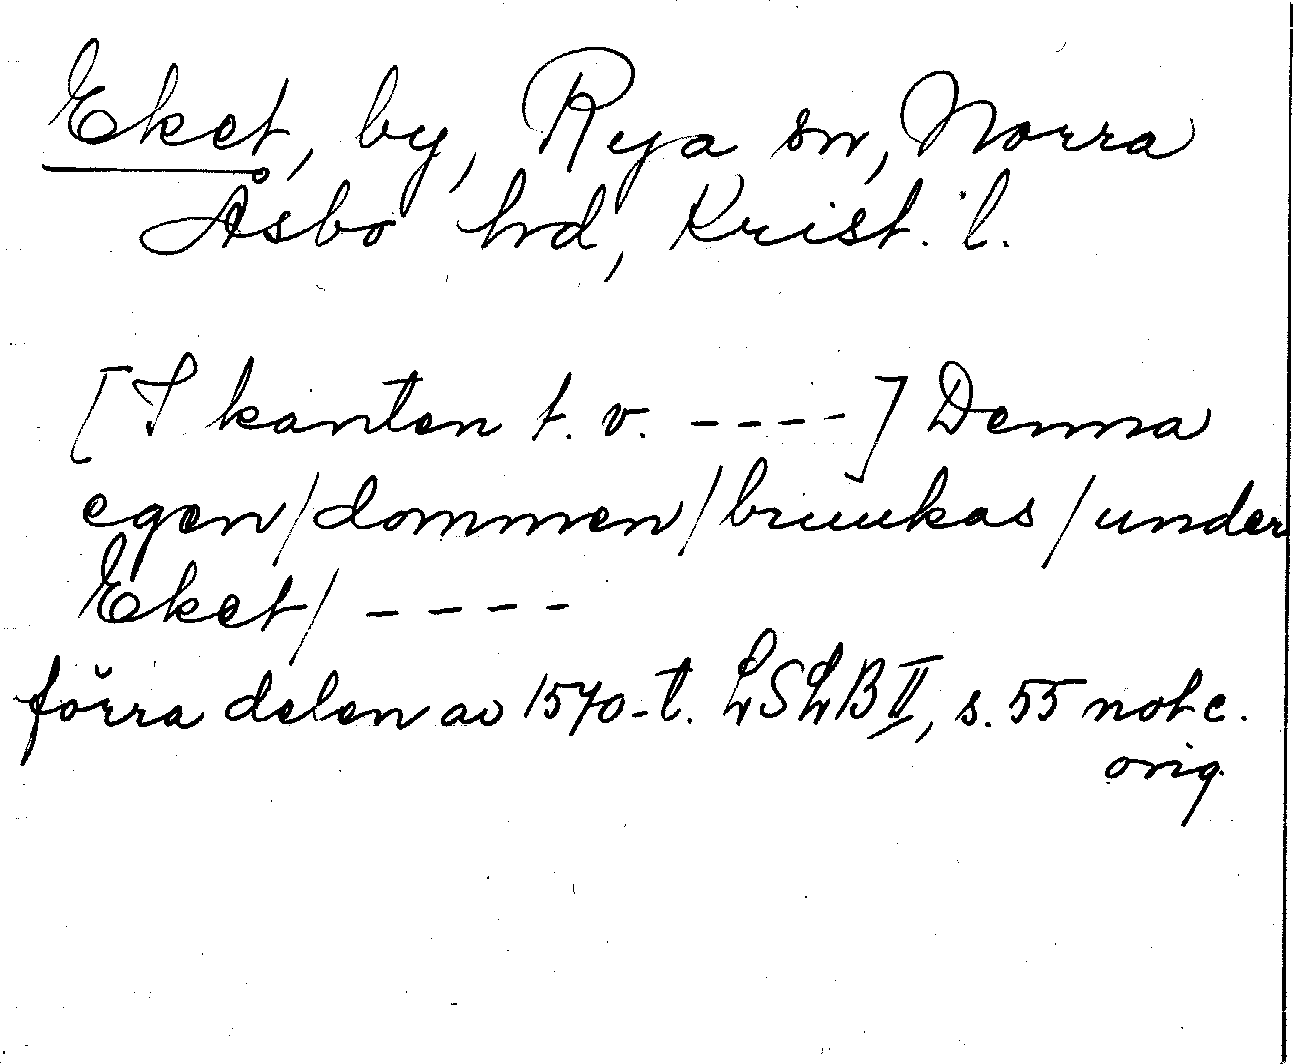 Eket, by, Rya sn, Norra
Åsbo hd, Krist. l.
[I kanten t. v. ----] Denna
egen/dommen/bruukas/under
Eket/ ----
förra delen av 1570-t. LSLB II, s. 55 not c.
orig.